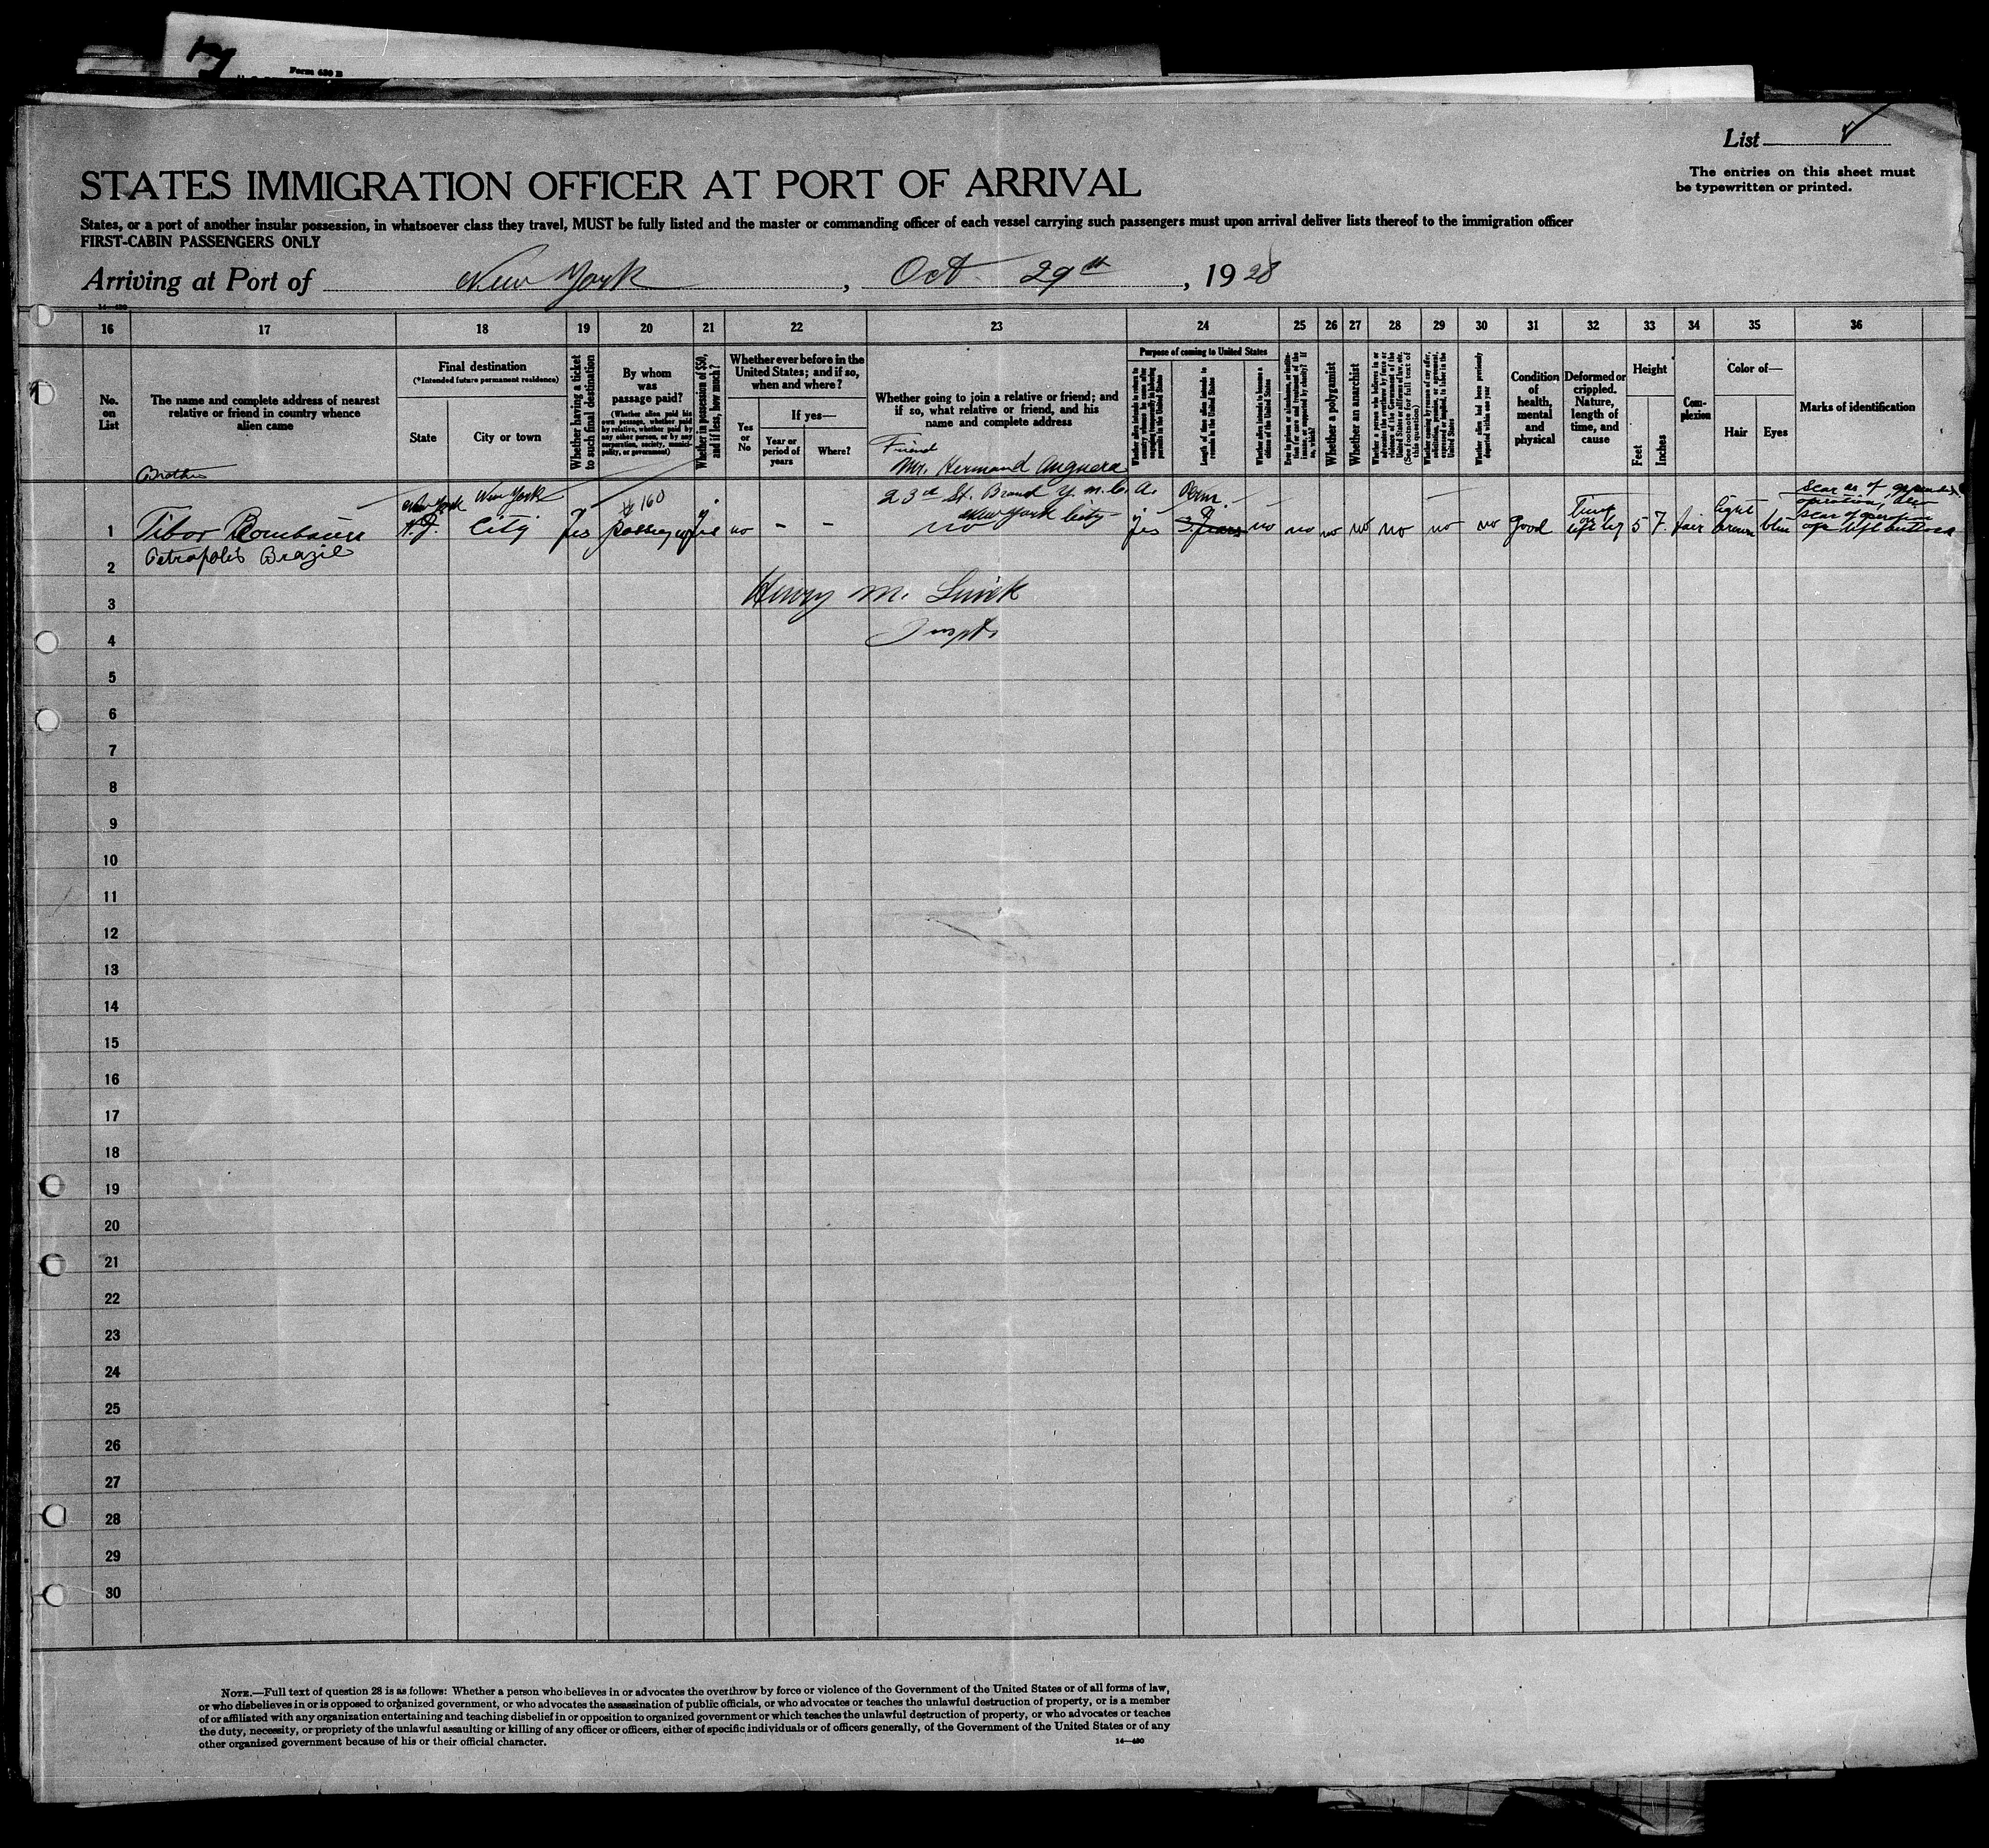 Form 630 B
List
The entries on this sheet must
be typewritten or printed.
STATES IMMIGRATION OFFICER AT PORT OF ARRIVAL
States, or a port of another insular possession, in whatsoever class they travel, MUST be fully listed and the master or commanding officer of each vessel carrying such passengers must upon arrival deliver lists thereof to the immigration officer
FIRST-CABIN PASSENGERS ONLY
Arriving at Port of New York, Oct 29th, 1928
14—430
16 17 18 19 20 21 22 23 24 25 26 27 28 29 30 31 32 33 34 35 36
No.
on
List
The name and complete address of nearest
relative or friend in country whence
alien came
Final destination
(*Intended future permanent residence)
State
City or town
Whether having a ticket
to such final destination
By whom
was
passage paid?
(Whether alien paid his
own passage, whether paid
by relative, whether paid by
any other person, or by any
corporation, society, munici-
pality, or government)
Whether in possession of $50,
and if less, how much?
Whether ever before in the
United States; and if so,
when and where?
Yes
or
No
If yes—
Year or
period of
years
Where?
Whether going to join a relative or friend; and
if so, what relative or friend, and his
name and complete address
Purpose of coming to United States
Whether alien intends to return to
country whence he came after
engaging temporarily in laboring
pursuits in the United States
Length of time alien intends to
remain in the United States
Whether alien intends to become a
citizen of the United States
Ever in prison or almshouse, or institu-
tion for care and treatment of the
insane, or supported by charity? If
so, which?
Whether a polygamist
Whether an anarchist
Whether a person who believes in or
advocates the overthrow by force or
violence of the Government of the
United States or all forms of law, etc.
(See footnote for full text of
this question)
Whether coming by reason of any offer,
solicitation, promise, or agreement,
expressed or implied, to labor in the
United States
Whether alien had been previously
deported within one year
Condition
of
health,
mental
and
physical
Deformed or
crippled.
Nature,
length of
time, and
cause
Height
Feet
Inches
Com-
plexion
Color of—
Hair
Eyes
Marks of identification
Brother
Friend
Mr. Hermand Anguera
New York New York $160 23rd St. Branch Y.M.C.A. Perm. light Scar of
1 Tibor City yes yes no - - no New York City yes no no no no no no no good 5 7 fair brown blue scar of operation
2 Petropolis Brazil
3 Henry M.
4
5
6
7
8
9
10
11
12
13
14
15
16
17
18
19
20
21
22
23
24
25
26
27
28
29
30
NOTE.—Full text of question 28 is as follows: Whether a person who believes in or advocates the overthrow by force or violence of the Government of the United States or of all forms of law,
or who disbelieves in or is opposed to organized government, or who advocates the assassination of public officials, or who advocates or teaches the unlawful destruction of property, or is a member
of or affiliated with any organization entertaining and teaching disbelief in or opposition to organized government or which teaches the unlawful destruction of property, or who advocates or teaches
the duty, necessity, or propriety of the unlawful assaulting or killing of any officer or officers, either of specific individuals or of officers generally, of the Government of the United States or of any
other organized government because of his or their official character.
14—430